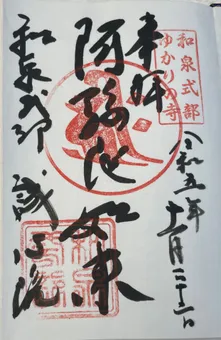 和泉式部
ゆかりの寺
奉拝
令和五年十一月二十二日
阿弥陀如来
和泉式部 誠心院